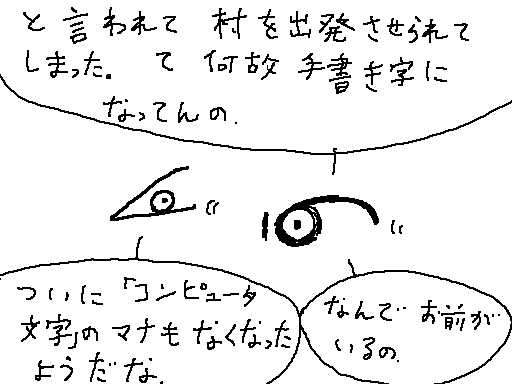 と言われて 村を出発させられて
しまった。 て 何故 手書き字に
なってんの.
ついに「コンピュータ
文字」の マナも なくなった
ようだな.
なんで お前が
いるの.